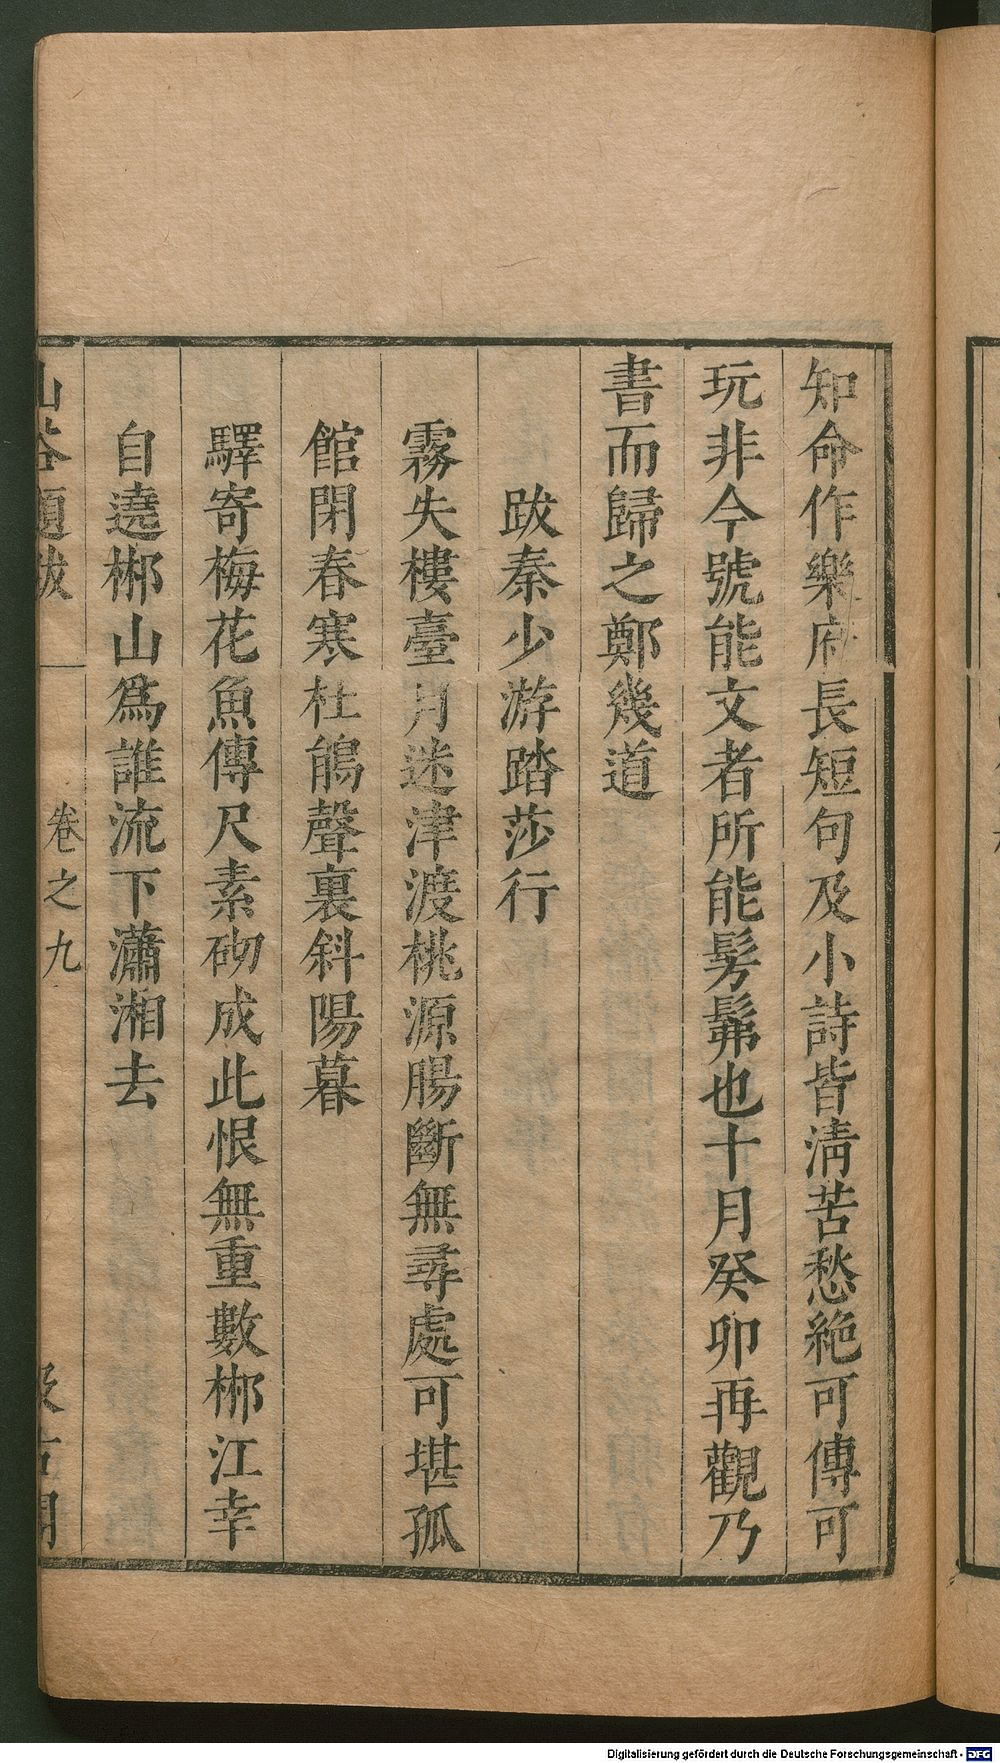 知命作樂府長短句及小詩皆淸苦愁絶可傳可
玩非今號能文者所能髣髴也十月癸卯再觀乃
書而歸之鄭幾道
跋秦少游踏莎行
霧失樓臺月迷津渡桃源腸斷無尋處可堪孤
館閉春寒杜鵑聲裏斜陽暮
驛寄梅花魚傳尺素砌成此恨無重數郴江幸
自遶郴山爲誰流下瀟湘去
山谷題跋
卷之九
汲古閣
Digitalisierung gefördert durch die Deutsche Forschungsgemeinschaft - DFG